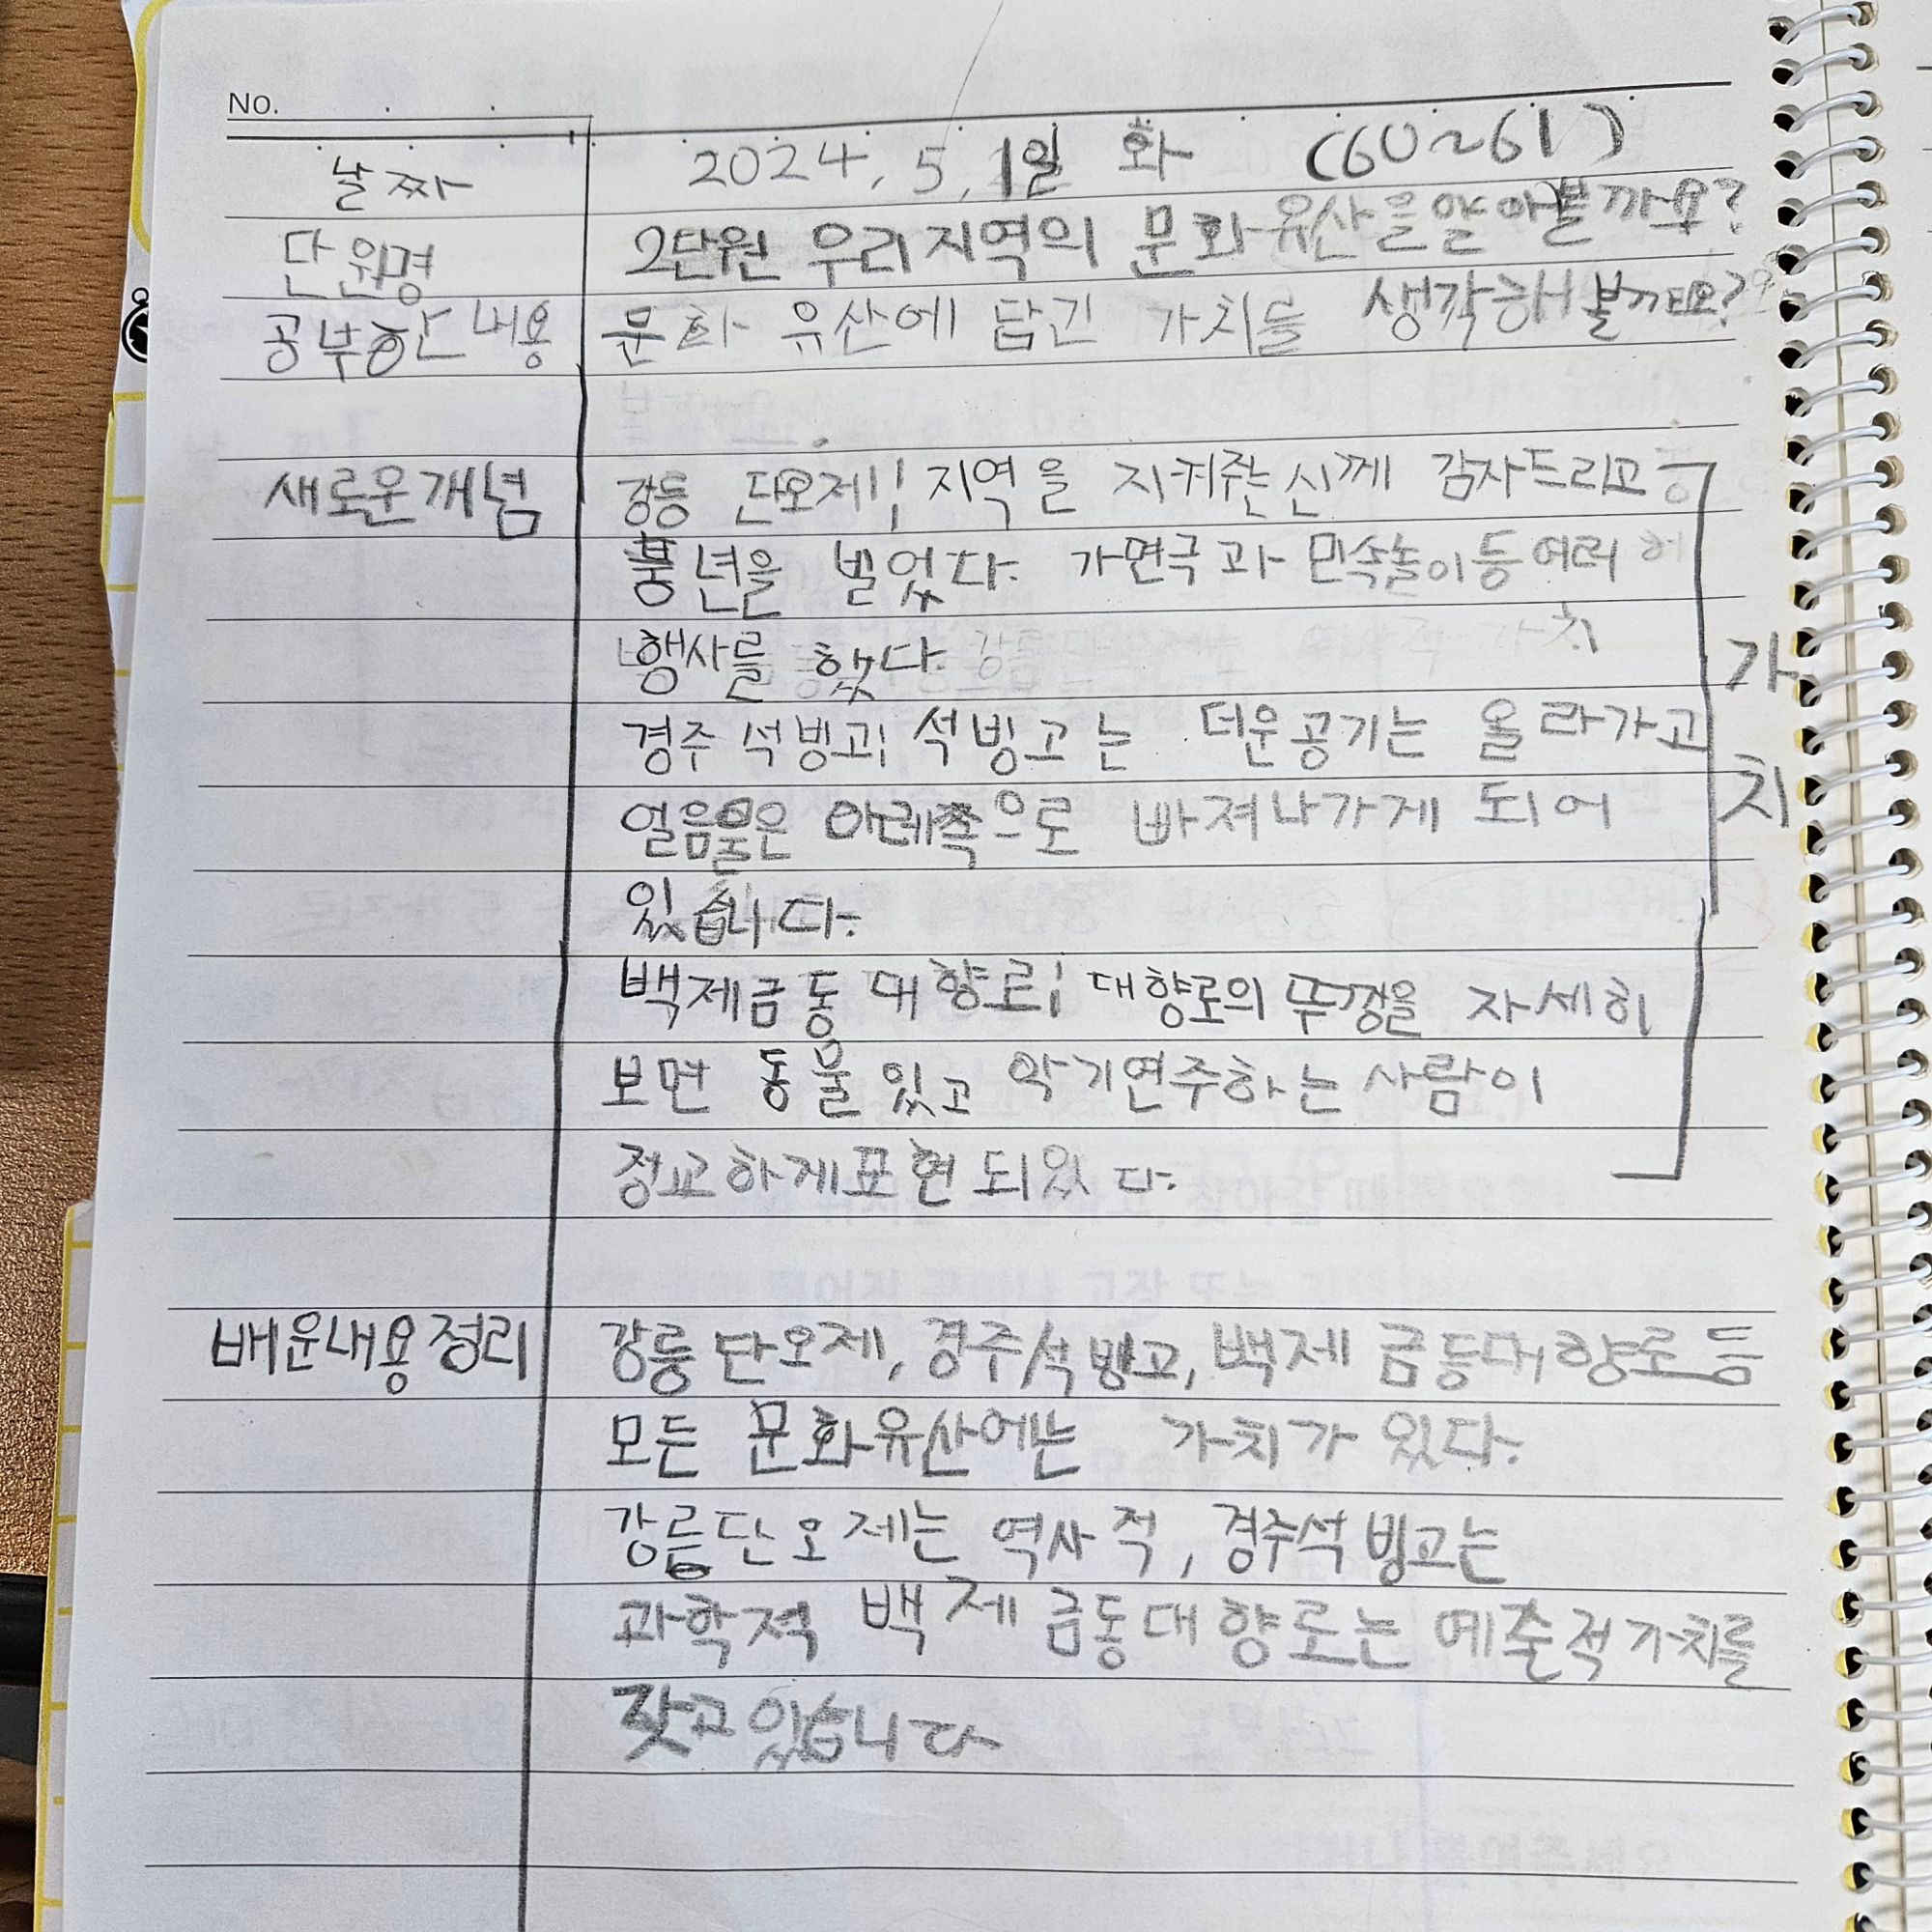 No.
날짜 2024, 5, 1일 화 (60~61)
단원명 2단원 우리 지역의 문화유산을 알아볼까요?
공부한 내용 문화 유산에 담긴 가치를 생각해 볼까요?
새로운개념 강릉 단오제; 지역을 지켜주는 신께 감사드리고
풍년을 빌었다. 가면극과 민속놀이등 여러
행사를 했다.
가
경주석빙고; 석빙고는 더운공기는 올라가고
치
얼음물은 아래쪽으로 빠져나가게 되어
있습니다.
백제금동대향로; 대향로의 뚜껑을 자세히
보면 동물 있고 악기연주하는 사람이
정교하게 표현 되있다.
배운내용정리 강릉단오제, 경주석빙고, 백제 금동대향로 등
모든 문화유산에는 가치가 있다.
강릉단오제는 역사적, 경주석빙고는
과학적 백제 금동대향로는 예술적가치를
갖고있습니다